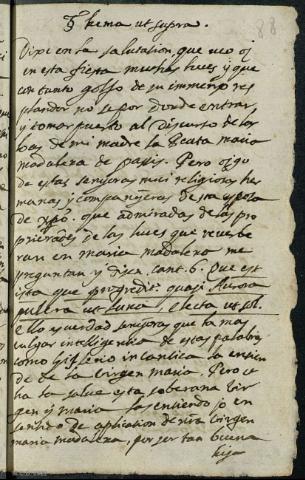 Thema ut supra.
88
Dixe en la salutacion, que veo oj
en esta fiesta muchas luces y que
con tanto golfo de su immenço res
plandor no se por donde entrar,
y tomar puerto al Discurso de loo
de mi madre la Beata maria
madalena de pazis. Pero oigo
de estas señoras mui religiosas her
manas y compañeras de esta esposa
de xpo. que admiradas de las pro
priedades de las luces que reverbe
ran en maria madalena me
preguntan y dicen cant. 6. Que est
ista que progredit. quasi Aurora
pulcra ut luna, electa ut sol.
Ello es verdad señoras que la mas
vulgar intelligencia de estas palabras
como la iglesia canta la entien
de de la Virgen maria. Pero
ha la salve esta soberana Vir
gen y maria la entiendo jo en
sentido de aplication de nra Virgen
maria madalena, por ser tan buena
hija